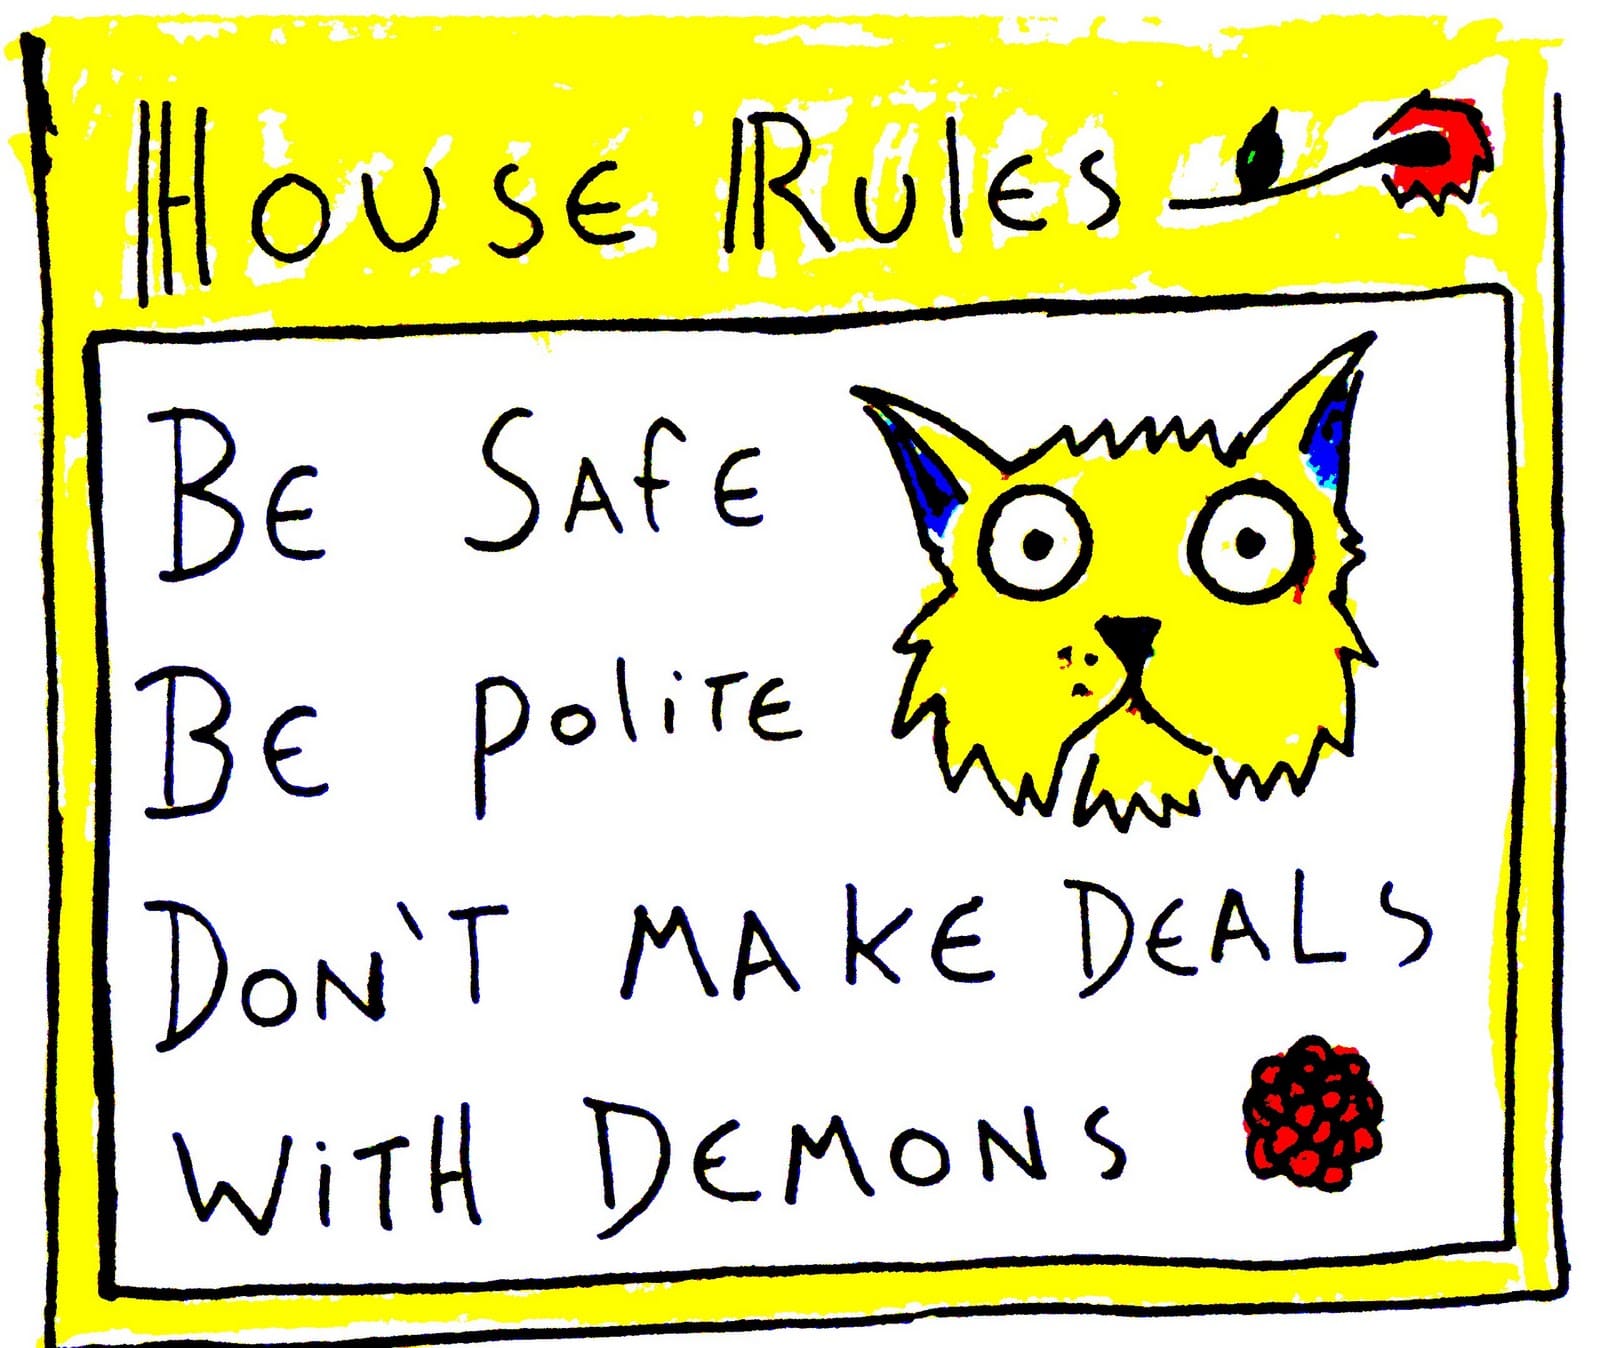 House Rules
Be Safe
Be Polite
Don't Make Deals
With Demons